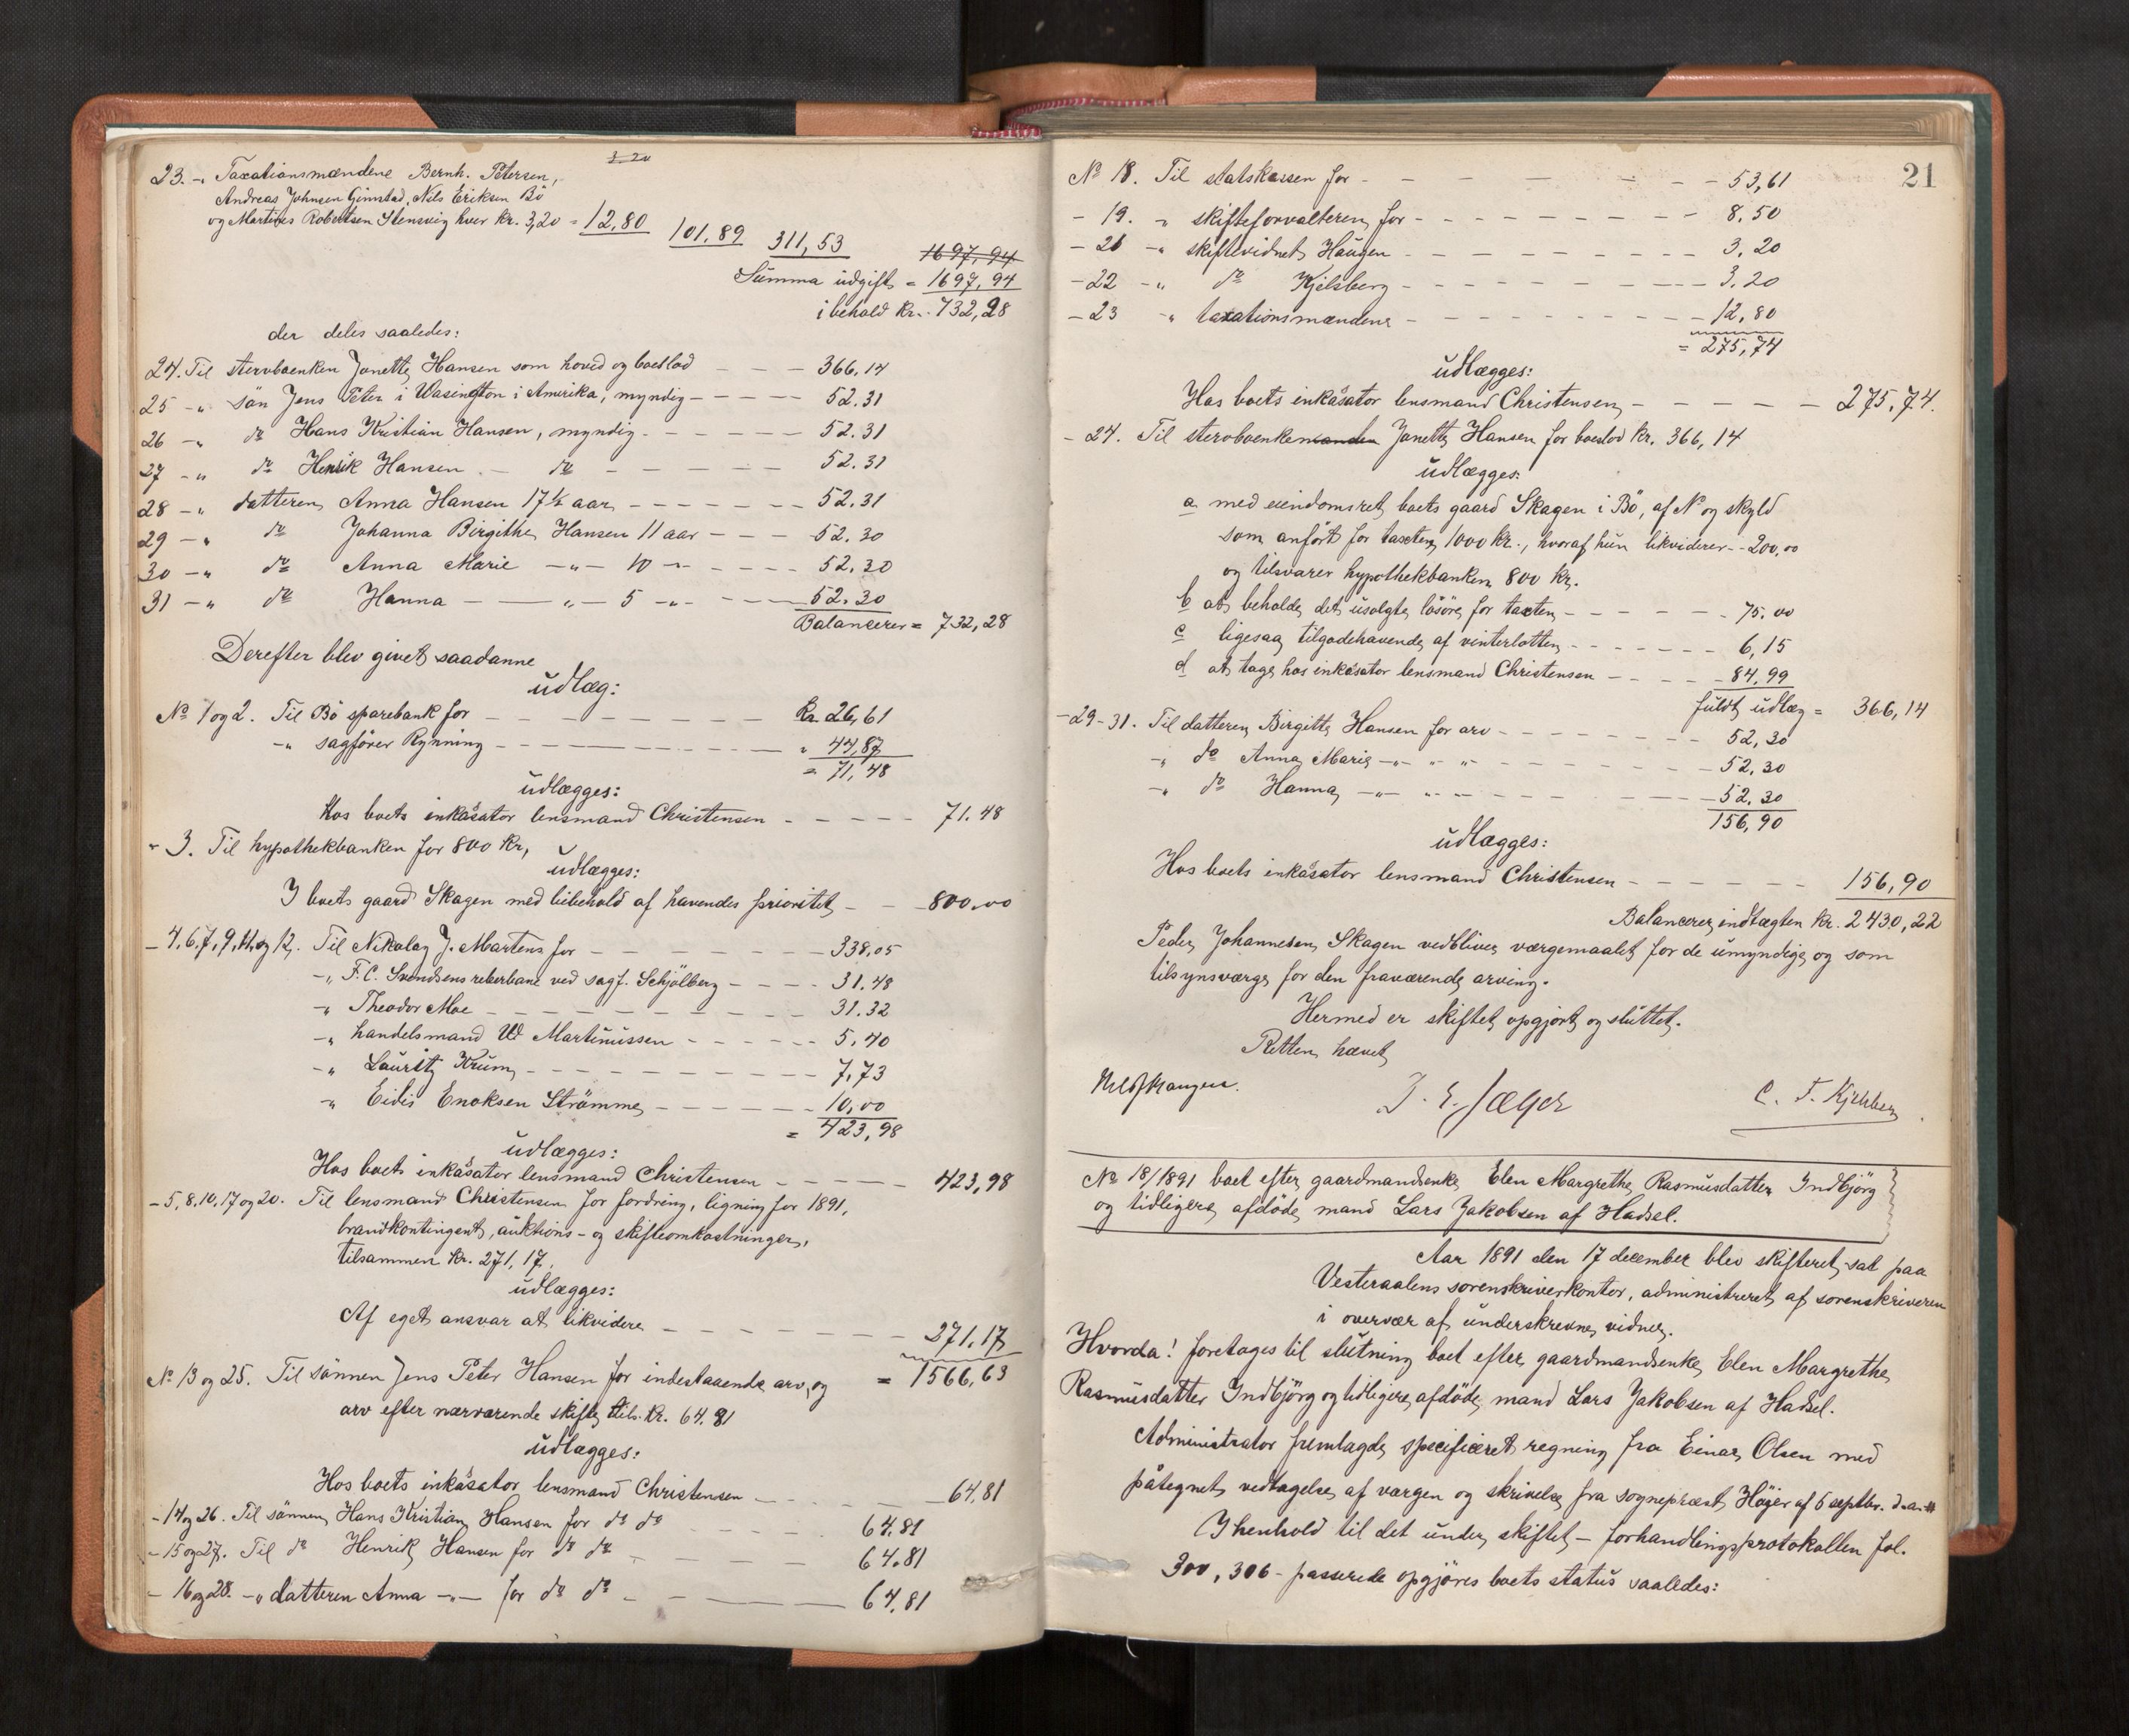 3.20
23. -„ Taxationsmændene Bernh. Petersen,
Andreas Johnsen Ginnstad, Nils Eriksen Bö
og Martines Robertsen Stensvig hver kr. 3,20 = 12,80 101.89 311,53 1697,94
Summa udgift = 1697,94
i behold kr. 732,28
der deles saaledes:
24. Til stervboenken Janette Hansen som hoved og boeslod — — — 366.14
25 -„ sön Jens Peter i Wasington i Amerika, myndig — — — — 52.31
26 -„ do Hans Kristian Hansen, myndig — — — — — 52.31
27 -„ do Henrik Hansen — do — — — — — 52.31
28 -„ datteren Anna Hansen 17½ aar — — — — — — 52.31
29 -„ do Johanna Birgithe Hansen 11 aar — — — 52.30
30 -„ do Anna Marie -„- 10 -„- — — — — 52.30
31 -„ do Hanna — — -„- 5 -„- — — — 52.30
Balancerer = 732,28
Derefter blev givet saadanne
udlæg:
No 1 og 2. Til Bö sparebank for — — — — — — — kr. 26,61
-„ sagförer Rynning — — — — — — — — „ 44,87
= 71,48
udlægges:
Hos boets inkasator lensmand Christensen — — — — — 71.48
- 3. Til hypothekbanken for 800 kr,
udlægges:
I boets gaard Skagen med bibehold af havendes prioritet — — 800.00
- 4,6,7,9,11 og 12. Til Nikolay J. Martens for — — — — — — — 338,05
-„ F. C. Svendsens reberbane ved sagf. Schjölberg — — — — 31.48
-„ Theodor Moe — — — — — — — — — 31.32
-„ handelsmand W Martinussen — — — — — — 5,40
-„ Lauritz Krum — — — — — — — — — 7,73
-„ Eidis Enoksen Strömme — — — — — — 10,00
= 423,98
udlægges:
Hos boets inkasator lensmand Christensen — — — — — 423,98
- 5,8,10,17 og 20. Til lensmand Christensen for fordring, ligning for 1891,
brandkontingent, auktions- og skifteomkostninger,
tilsammen kr. 271,17,
udlægges:
Af eget ansvar at likvidere — — — — — — — — 271.17
= 1566,63
No 13 og 25. Til sönnen Jens Peter Hansen for indestaaende arv, og
arv efter nærværende skifte tils. kr. 64.81
udlægges:
Hos boets inkasator lensmand Christensen — — — — — 64,81
- 14 og 26. Til sönnen Hans Kristian Hansen for do do — — — — 64.81
- 15 og 27. Til do Henrik Hansen for do do — — — — 64.81
- 16 og 28. -„ datteren Anna -„- for do do — — — — 64,81
21
No 18. Til statskassen for — — — — — — — — 53,61
- 19. „ skifteforvalteren for — — — — — — — — — 8.50
- 21 -„ skiftevidnet Haugen — — — — — — — — — 3.20
- 22 -„ do Kjelsberg — — — — — — — — — 3.20
- 23 -„ taxationsmændene — — — — — — — — — 12,80
= 275,74
udlægges:
Hos boets inkasator lensmand Christensen — — — — — — 275,74.
- 24. Til stervboenkemanden Janette Hansen for boeslod kr. 366,14
udlægges:
a med eiendomsret boets gaard Skagen i Bö, af No og skyld
som anfört for taxten 1000 kr., hvoraf hun likviderer -- 200,00
og tilsvarer hypothekbanken 800 kr.
b at beholde det usolgte lösöre for taxten — — — — — — 75.00
c ligesaa tilgodehavende af vinterlotten — — — — — — — 6,15
d at tage hos inkasator lensmand Christensen — — — — — 84.99
fuldt udlæg = 366,14
- 29-31. Til datteren Birgitte Hansen for arv — — — — — — — — 52,30
-„ do Anna Marie -„- „ „- — — — — — — — — 52.30
-„ do Hanna -„- „ -„- — — — — — — — 52.30
156,90
udlægges:
Hos boets inkasator lensmand Christensen — — — — — — — 156,90
Balancerer indtægten kr. 2430,22
Peder Johannesen Skagen vedbliver værgemaalet for de umyndige og som
tilsynsværge for den fraværende arving.
Hermed er skiftet opgjort og sluttet.
Retten hævet
J. E. Jæger C. F. Kjelsberg
No 18/1891 boet efter gaardmandsenke Elen Margrethe Rasmusdatter Indbjörg
og tidligere afdöde mand Lars Jakobsen af Hadsel.
Aar 1891 den 17 december blev skifteret sat paa
Vesteraalens sorenskriverkontor, administreret af sorenskriveren
i overvær af underskrevne vidner.
Hvorda! foretoges til slutning boet efter gaardmandsenke Elen Margrethe
Rasmusdatter Indbjörg og tidligere afdöde mand Lars Jakobsen af Hadsel.
Administrator fremlagde specificeret regning fra Einar Olsen med
påtegnet vedtagelse af værgen og skrivelse fra sognepræst Höyer af 5 septbr. d. a.
I henhold til det under skiftet — forhandlingsprotokollen fol.
300, 306 - passerede opgjöres boets status saaledes: